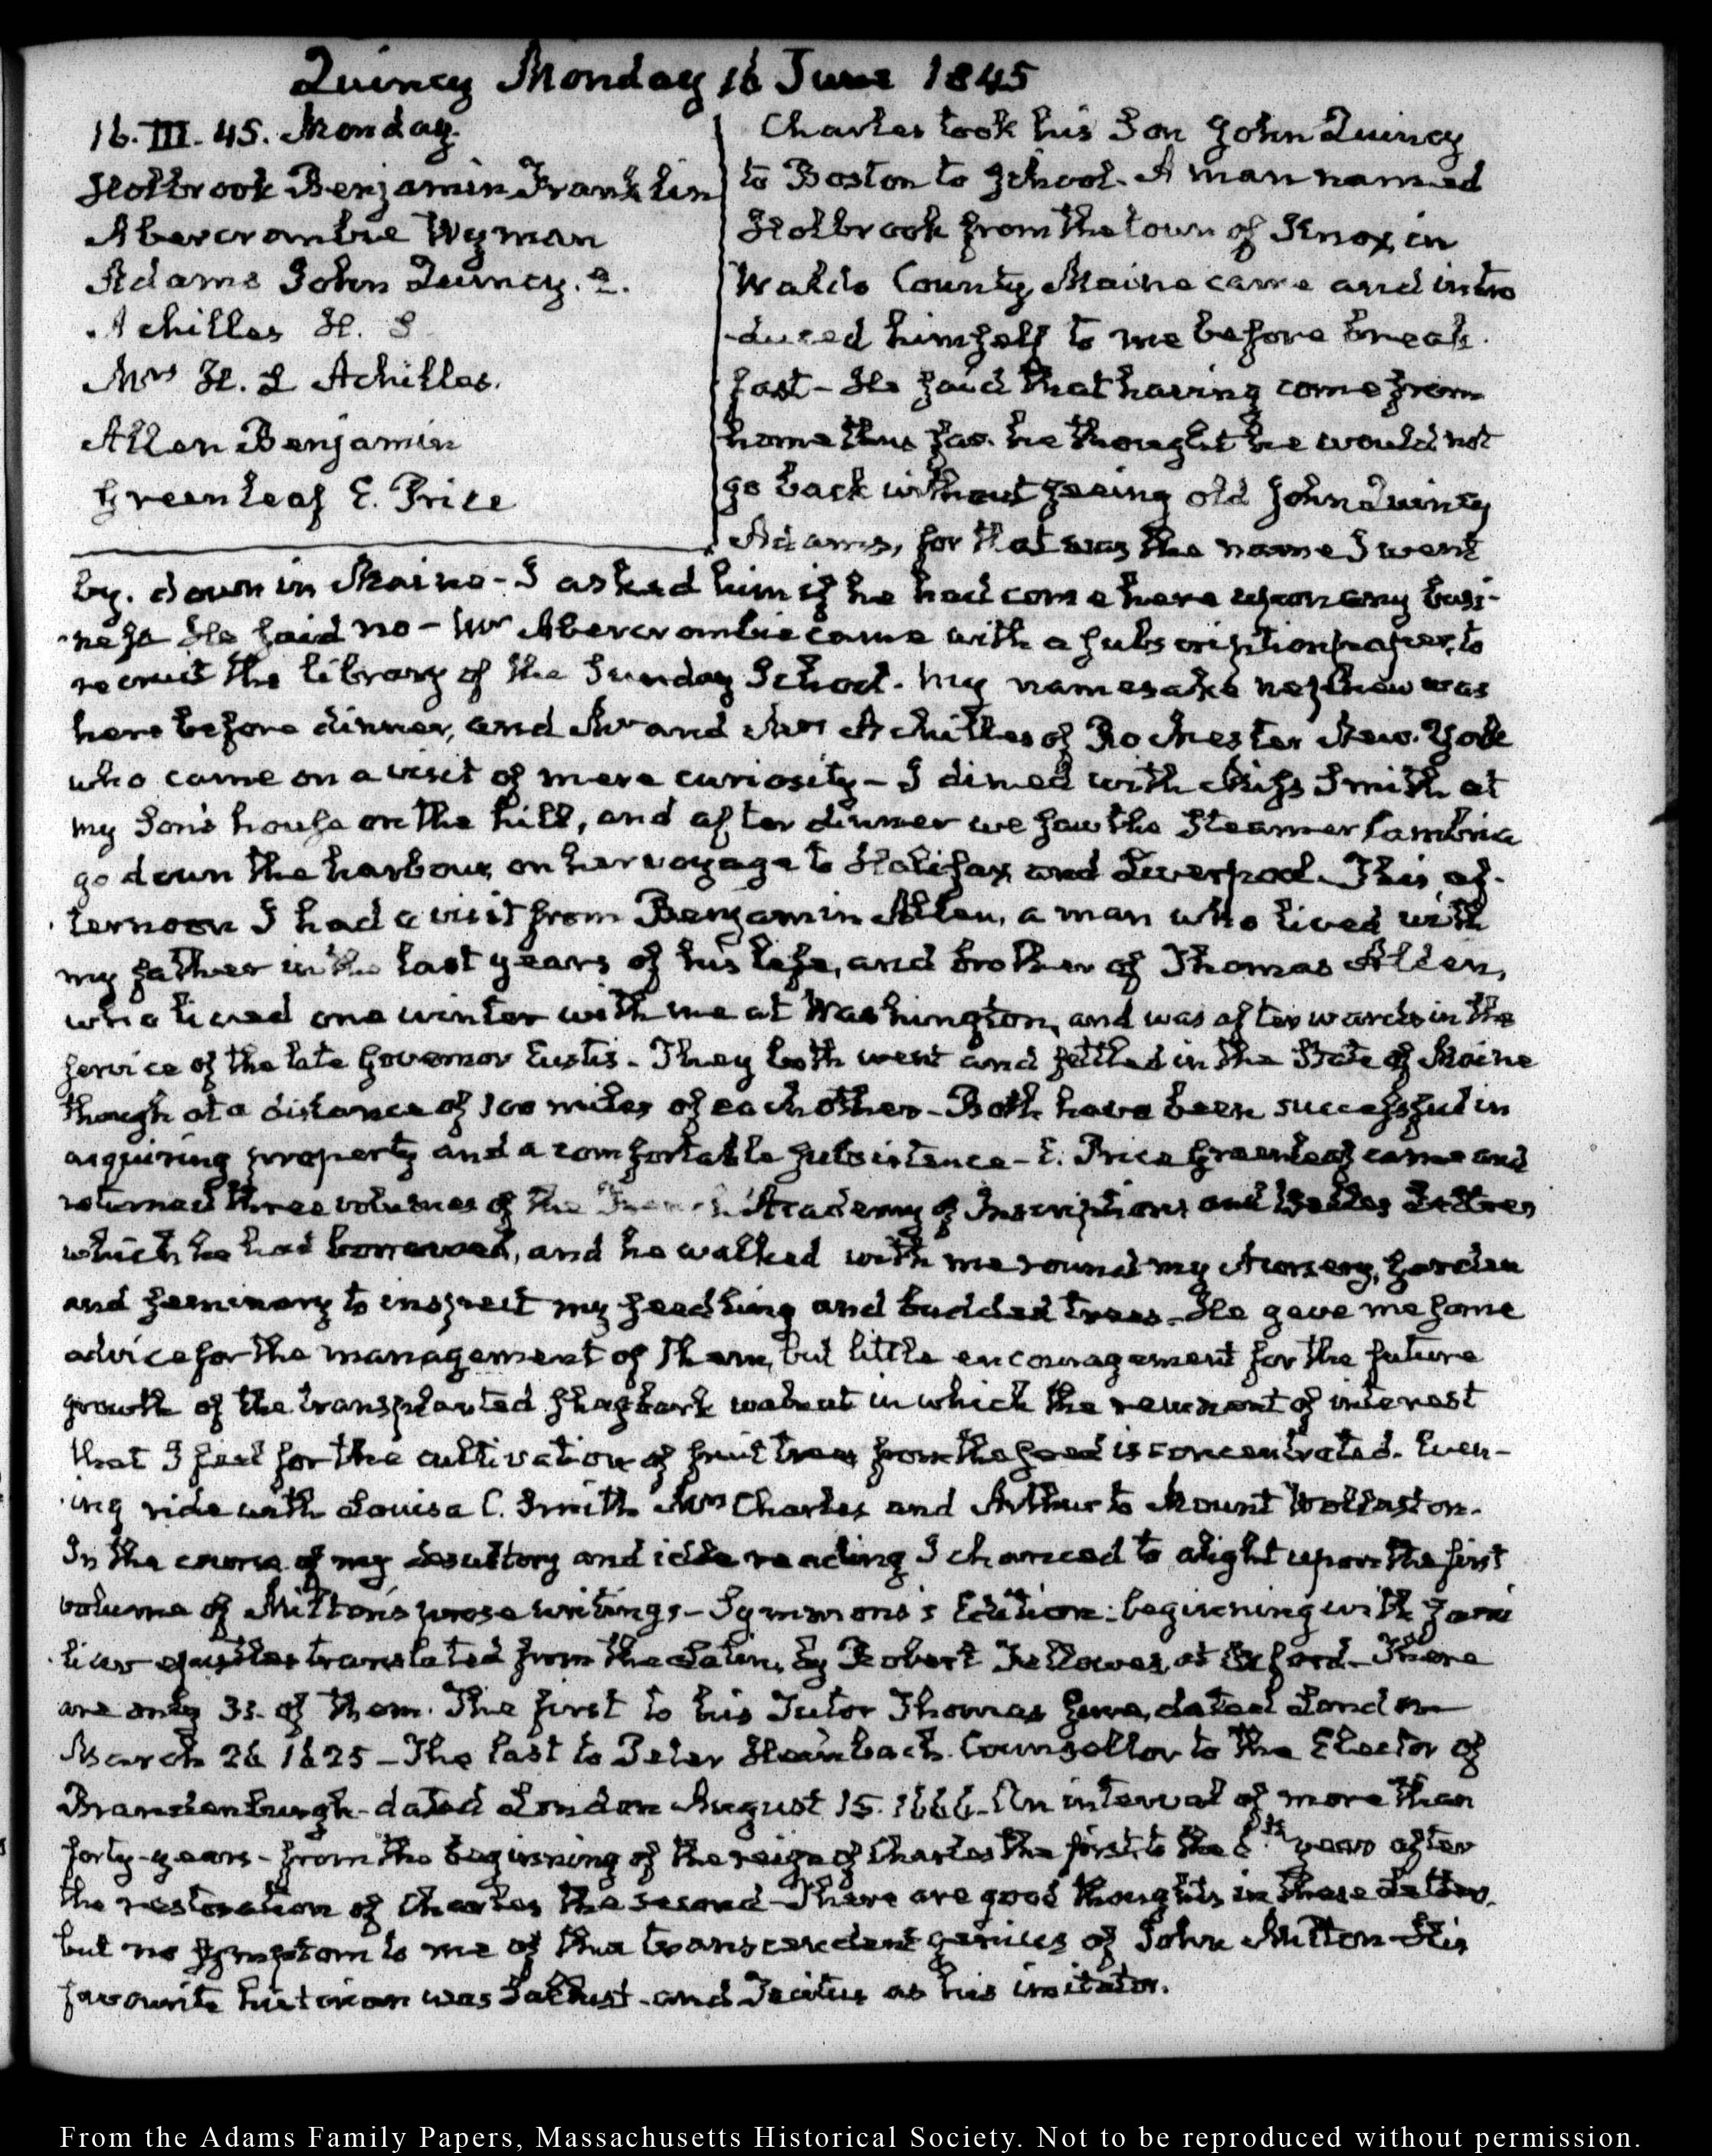 Quincy Monday 16 June 1845
16. III. 45. Monday.
Holbrook Benjamin Franklin
Abercrombie Wyman
Adams John Quincy. 2.
Achilles H. S
Mrs H. L Achilles.
Allen Benjamin
Greenleaf E. Price
Charles took his Son John Quincy
to Boston to School. A man named
Holbrook from the town of Knox, in
Waldo County, Maine came and intro
duced himself to me before break.
fast – He said that having come from
home thus far. he thought he would not
go back without seeing old John Quincy
Adams, for that was the name I went
by. down in Maine – I asked him if he had come here upon any busi-
ness He said no – Mr Abercrombie came with a subscription paper, to
recruit the library of the Sunday School. My namesake nephew was
here before dinner, and Mr and Mrs Achilles of Rochester New. York
who came on a visit of mere curiosity – I dined with Miss Smith at
my Son's house on the hill, and after dinner we saw the Steamer Cambria
go down the harbour, on her voyage to Halifax and Liverpool. This af-
ternoon I had a visit from Benjamin Allen, a man who lived with
my father in the last years of his life, and brother of Thomas Allen,
who lived one winter with me at Washington, and was afterwards in the
service of the late Governor Eustis – They both went and settled in the State of Maine
though at a distance of 100 miles of each other – Both have been successful in
acquiring property and a comfortable subsistence – E. Price Greenleaf came and
returned three volumes of the French Academy of Inscriptions and Belles Lettres
which he had borrowed, and he walked with me round my Nursery, Garden
and Seminary to inspect my seedling and budded trees – He gave me some
advice for the management of them, but little encouragement for the future
growth of the transplanted shagbark walnut in which the remnant of interest
that I feel for the cultivation of fruit trees from the seed is concentrated. Even-
ing ride with Louisa C. Smith Mrs Charles and Arthur to Mount Wollaston.
In the course of my desultory and idle reading I chanced to alight upon the first
volume of Milton's prose writings – Symmons's Edition: beginning with fami
liar epistles translated from the Latin, by Robert Fellowes, at Oxford – There
are only 31. of them. The first to his Tutor Thomas Jure, dated London
March 26 1625 – The last to Peter Heinbach. Counsellor to the Elector of
Brandenburgh – dated London August 15. 1666 – An interval of more than
forty-years – from the beginning of the reign of Charles the first, to the 6th. year after
the restoration of Charles the second – There are good thoughts in these letters,
but no symptom to me of the transcendent genius of John Milton – His
favourite historian was Sallust – and Tacitus as his imitator.
From the Adams Family Papers, Massachusetts Historical Society. Not to be reproduced without permission.